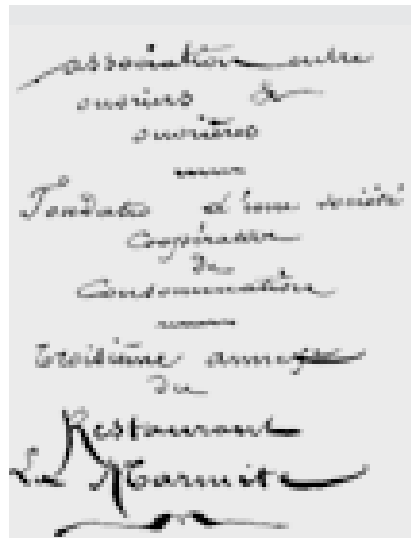 association entre
ouvriers &
ouvrières
d'une société
Coopérative
de
Consommation
troisième année
du
Restaurant
La Marmite